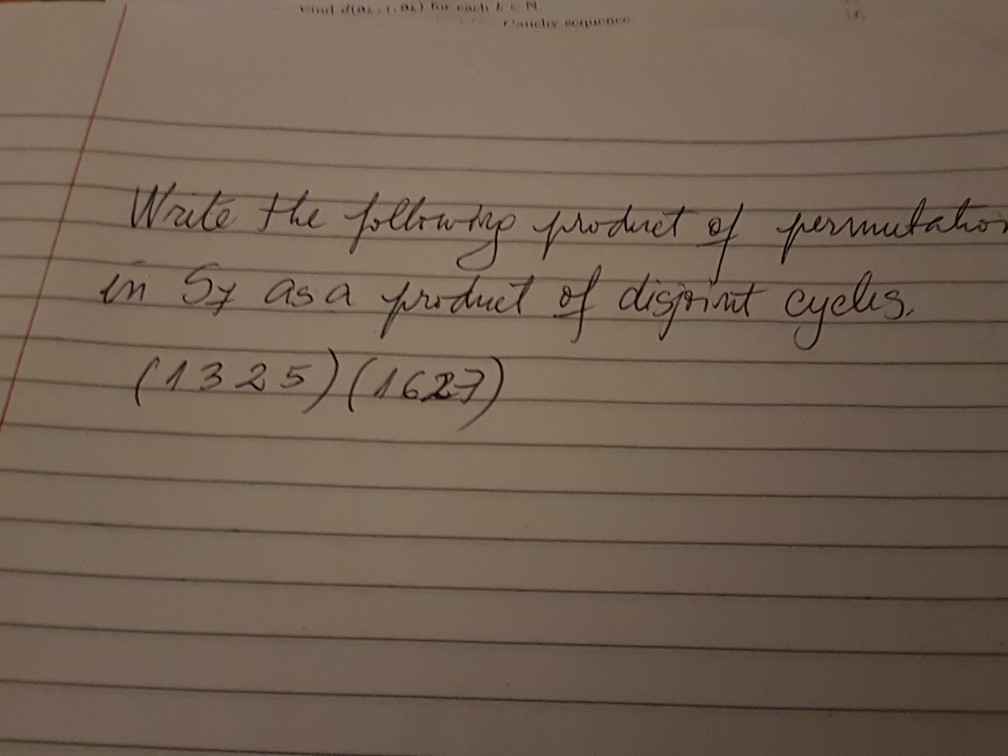 Find d(aₖ₊₁, aₖ) for each k ∈ N
Cauchy sequence.
Write the following product of permutation
in S7 as a product of disjoint cycles.
(1 3 2 5)(1627)